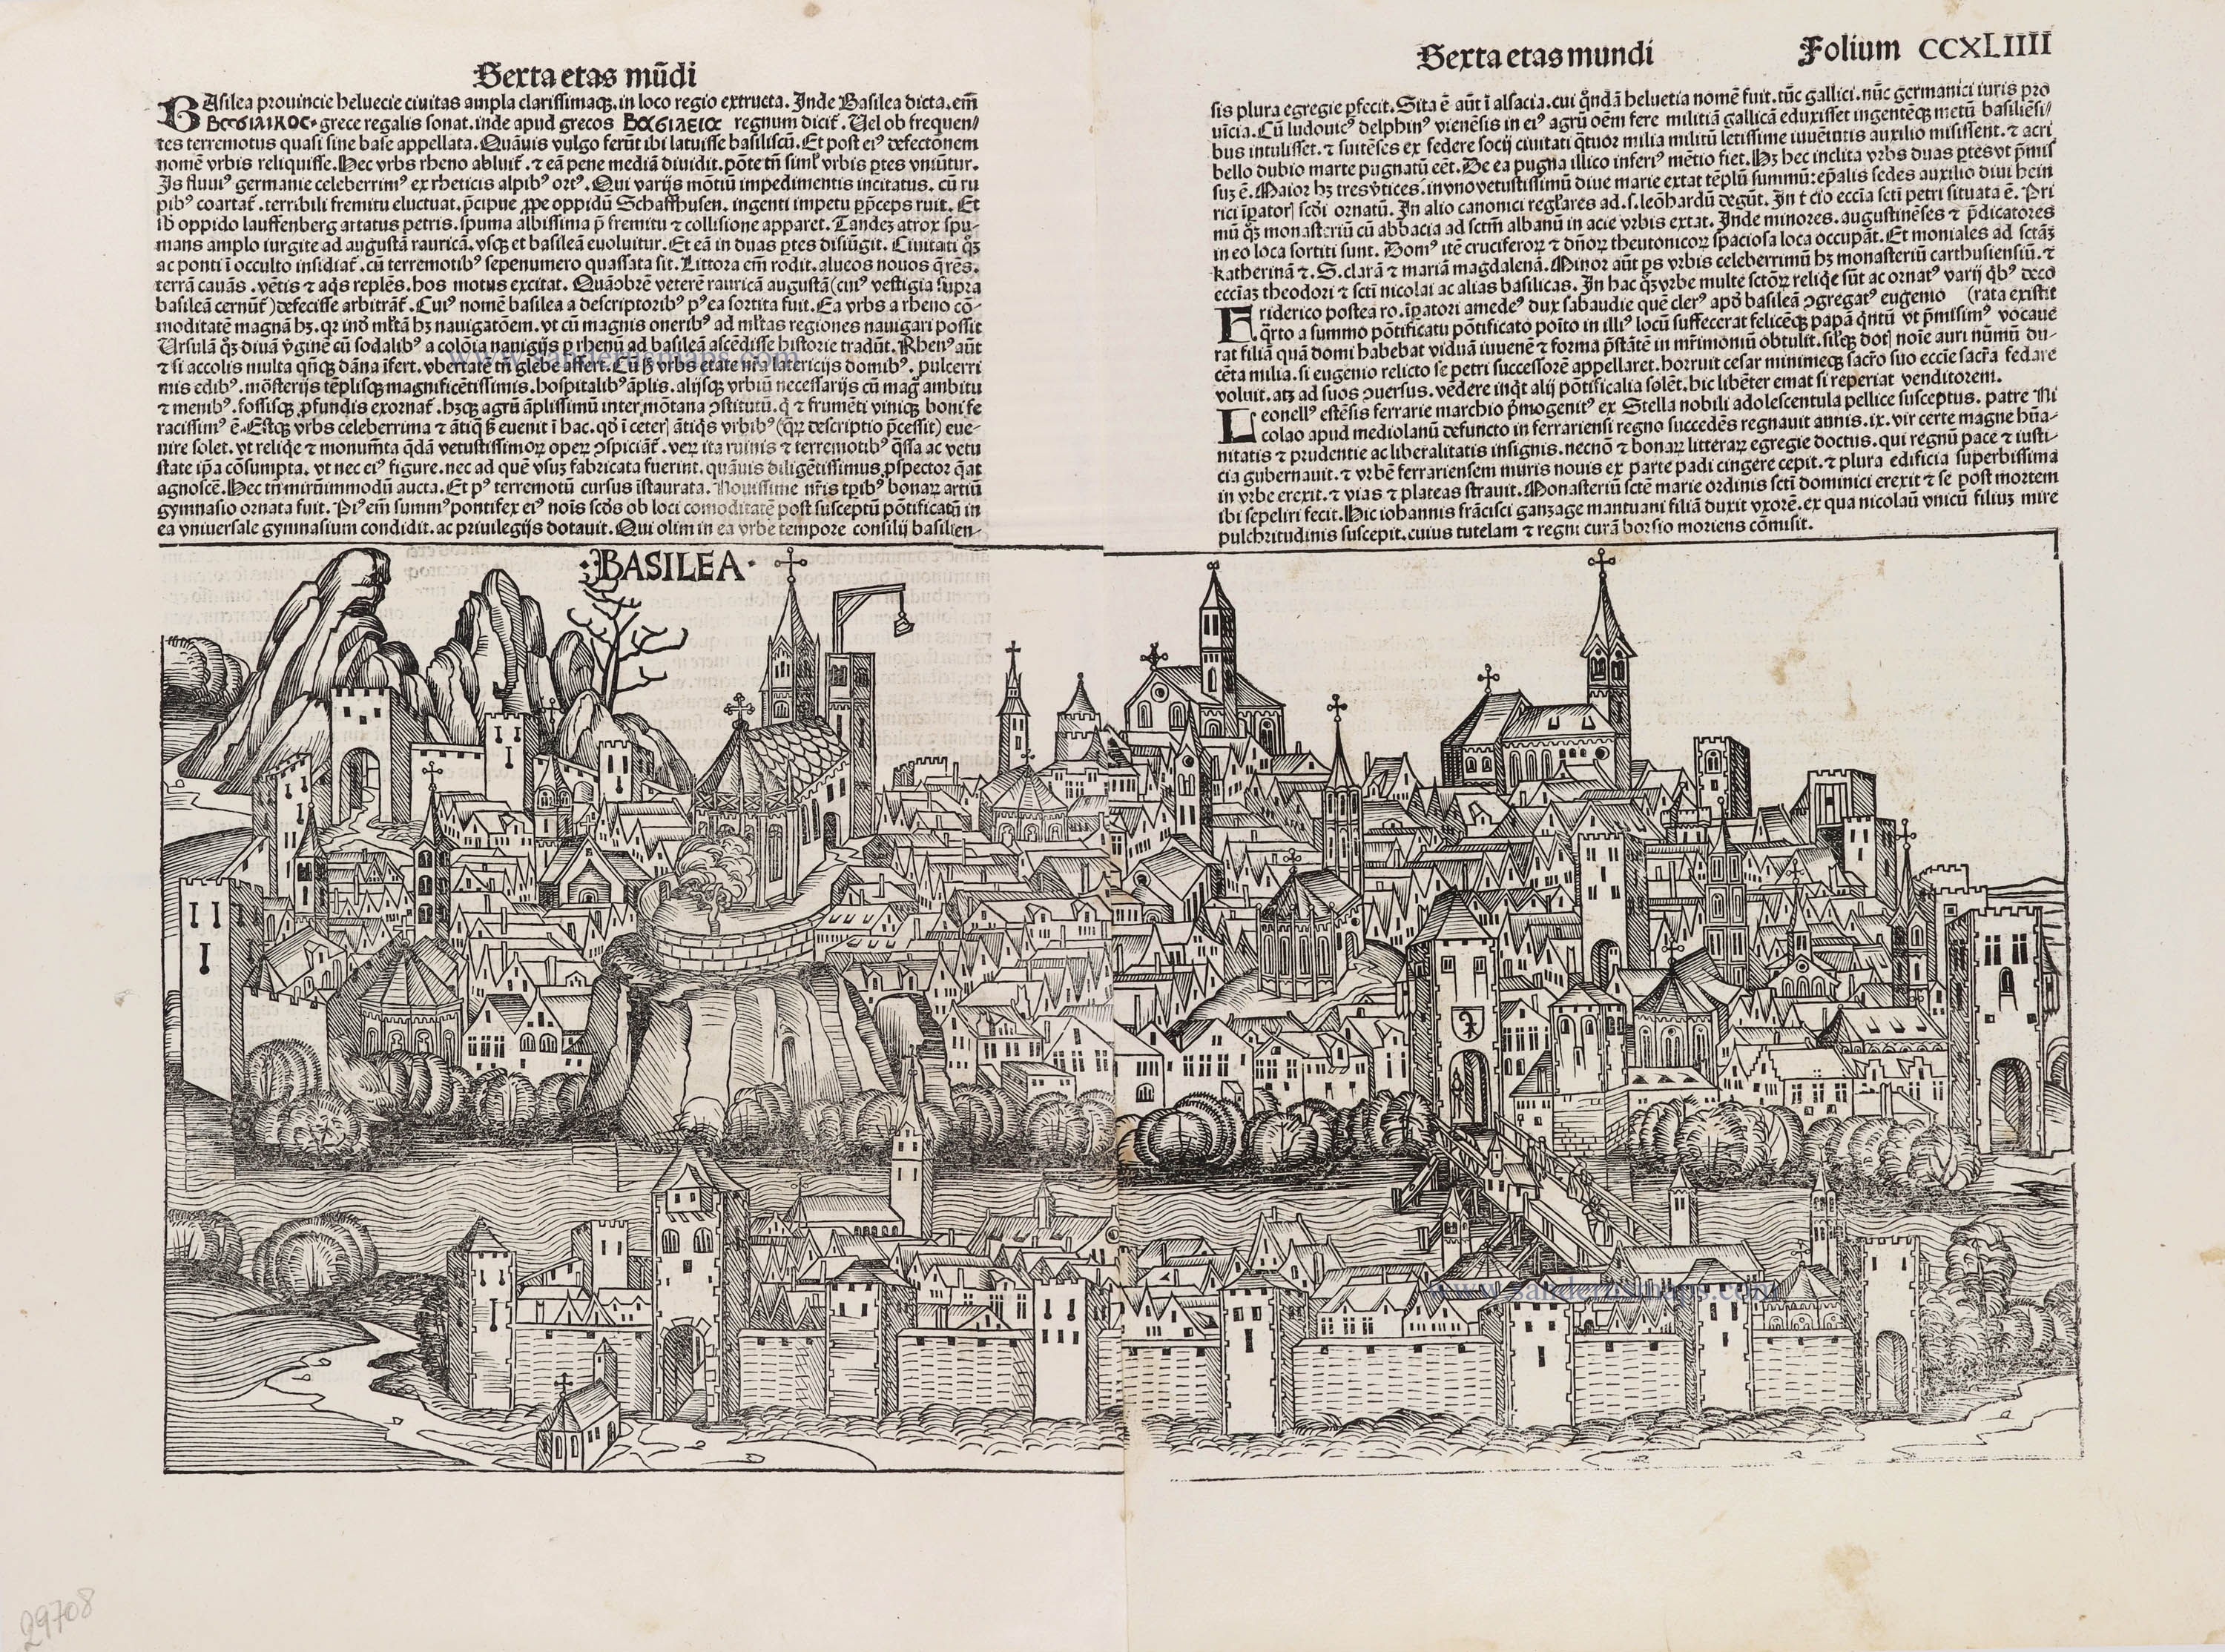 Sexta etas mūdi
BAsilea prouincie heluecie ciuitas ampla clarissimaqꝫ. in loco regio extructa. Inde Basilea dicta. em̄
ΒαϭιλιΚΟϹ. grece regalis sonat. inde apud grecos ΒαϭιλΕΙα regnum dicit᷑. Uel ob frequen/
tes terremotus quasi sine base appellata. Quāuis vulgo ferūt ibi latuisse basiliscū. Et post eiꝰ defectonem
nomē vrbis reliquisse. Hec vrbs rheno abluit᷑. ⁊ eā pene mediā diuidit. pōte tn̄ siml̕ vrbis ꝑtes vniūtur.
Is fluuiꝰ germanie celeberrimꝰ ex rheticis alpibꝰ ortꝰ. Qui varijs mōtiū impedimentis incitatus. cū ru
pibꝰ coartat᷑. terribili fremitu eluctuat. p̄cipue ꝓpe oppidū Schaffhusen. ingenti impetu p̄ceps ruit. Et
ib̕ oppido lauffenberg artatus petris. spuma albissima p̄ fremitu ⁊ collisione apparet. Tandeꝫ atrox spu-
mans amplo iurgite ad augustā rauricā. vsqꝫ et basileā euoluitur. Et eā in duas ꝑtes disiūgit. Ciuitati qͦꝫ
ac ponti ī occulto insidiat᷑. cū terremotibꝰ sepenumero quassata sit. Littora em̄ rodit. alueos nouos q̄rēs.
terrā cauās. vētis ⁊ aq̄s replēs. hos motus excitat. Quāobrē veterē rauricā augustā (cuiꝰ vestigia supra
basileā cernūt᷑) defecisse arbitrāt᷑. Cuiꝰ nomē basilea a descriptoribꝰ pꝰea sortita fuit. Ea vrbs a rheno cō-
moditatē magnā hꝫ. qr inō ml̕tā hꝫ nauigatōem. vt cū magnis oneribꝰ ad ml̕tas regiones nauigari possit
Ursulā qͦꝫ diuā v̕ginē cū sodalibꝰ a colōia nauigijs ꝑ rhenū ad basileā ascēdisse historie tradūt. Rhenꝰ aūt
⁊ si accolis multa qn̄qꝫ dāna īfert. vbertatē tn̄ glebe affert. Cū vrbs etate nr̄a latericijs domibꝰ. pulcerri
mis edibꝰ. mōsterijs tēplisqꝫ magnificētissimis. hospitalibꝰ āplis. alijsqꝫ vrbiū necessarijs cū mag̕ ambitu
⁊ menibꝰ. fossisqꝫ ꝓfundis exornat᷑. hꝫqꝫ agrū āplissimū inter mōtana ꝯstitutū. q̕ ⁊ frumēti viniqꝫ boni fe
racissimꝰ ē. Estqꝫ vrbs celeberrima ⁊ ātiq̄ euenit ī hac. qd̕ ī ceter̕ ātiq̄s vrbibꝰ (qꝝ descriptio p̄cessit) eue-
nire solet. vt reliq̄e ⁊ monumēta q̄dā vetustissimoꝝ opeꝝ ꝯspiciāt᷑. veꝝ ita ruinis ⁊ terremotibꝰ q̄ssa ac vetu
state ip̄a cōsumpta. vt nec eiꝰ figure. nec ad quē vsuꝫ fabricata fuerint. quāuis diligētissimus ꝓspector q̄at
agnoscē. Hec tn̄ mirūimmodū aucta. Et pꝰ terremotū cursus īstaurata. Nouissime nr̄is tp̄ibꝰ bonaꝝ artiū
gymnasio ornata fuit. Piꝰ em̄ summꝰ pontifex eiꝰ nois scd̕s ob loci comoditatē post susceptū pōtificatū in
ea vniuersale gymnasium condidit. ac priuilegijs dotauit. Qui olim in ea vrbe tempore consilij basilien-
Sexta etas mundi
Folium CCXLIIII
sis plura egregie ꝑfecit. Sita ē aūt ī alsacia. cui qͦndā heluetia nomē fuit. tūc gallici. nūc germanici iuris pro
uīcia. Cū ludouicꝰ delphinꝰ vienēsis in eiꝰ agrū oēm fere militiā gallicā eduxisset ingentēqꝫ metū basiliēsi/
bus intulisset. ⁊ suitēses ex federe socij ciuitati q̄tuor milia militū letissime iuuētutis auxilio misissent. ⁊ acri
bello dubio marte pugnatū eēt. De ea pugna illico inferiꝰ mētio fiet. Hꝫ hec inclita vrbs duas ꝑtes vt p̄mis
suꝫ ē. Maior hꝫ tres v̕tices. in vno vetustissimū diue marie extat tēplū summū: ep̄alis sedes auxilio diui hein
rici īꝑatorꝭ scd̕i ornatū. In alio canonici regl̕ares ad. s. leōhardū degūt. In t̕cio eccīa scti petri situata ē. Pri
mū qͦꝫ monasteriū cū abbacia ad sctm̄ albanū in acie vrbis extat. Inde minores. augustinēses ⁊ p̄dicatores
in eo loca sortiti sunt. Domꝰ itē cruciferoꝝ ⁊ dn̄oꝝ theutonicoꝝ spaciosa loca occupāt. Et moniales ad sctāꝫ
katherinā ⁊. S. clarā ⁊ mariā magdalenā. Minor aūt ꝑs vrbis celeberrimū hꝫ monasteriū carthusiensiū. ⁊
eccīaꝫ theodori ⁊ scti nicolai ac alias basilicas. In hac qͦꝫ vrbe multe sctoꝝ reliq̄e sūt ac ornatꝰ varij qͥbꝰ deco
Friderico postea ro. īꝑatori amedeꝰ dux sabaudie quē clerꝰ apd̕ basileā ꝯgregatꝰ eugenio (rata existit
qͣrto a summo pōtificatu pōtificato poīto in illiꝰ locū suffecerat felicēqꝫ papā qͥntū vt p̄misimꝰ vocaue
rat filiā quā domi habebat viduā iuuenē ⁊ forma p̄stātē in mr̄imōniū obtulit. silr̕qꝫ dotꝭ noīe auri nūmū du-
cēta milia. si eugenio relicto se petri successorē appellaret. horruit cesar minimeqꝫ sacr̄o suo eccīe sacr̄a fedare
voluit. atꝫ ad suos ꝯuersus. vēdere inqͥt alij pōtificalia solēt. hic libēter emat si reperiat venditorem.
Leonellꝰ estēsis ferrarie marchio p̄mogenitꝰ ex Stella nobili adolescentula pellice susceptus. patre Ni
colao apud mediolanū defuncto in ferrariensi regno succedēs regnauit annis. ix. vir certe magne hūa-
nitatis ⁊ prudentie ac liberalitatis insignis. necnō ⁊ bonaꝝ litteraꝝ egregie doctus. qui regnū pace ⁊ iusti-
cia gubernauit. ⁊ vrbē ferrariensem muris nouis ex parte padi cingere cepit. ⁊ plura edificia superbissima
in vrbe erexit. ⁊ vias ⁊ plateas strauit. Monasteriū sctē marie ordinis scti dominici erexit ⁊ se post mortem
ibi sepeliri fecit. Hic iohannis frācisci ganzage mantuani filiā duxit vxorē. ex qua nicolaū vnicū filiuꝫ mire
pulchritudinis suscepit. cuius tutelam ⁊ regni curā borsio moriens cōmisit.
:BASILEA·
www.sanderusmaps.com
www.sanderusmaps.com
29708